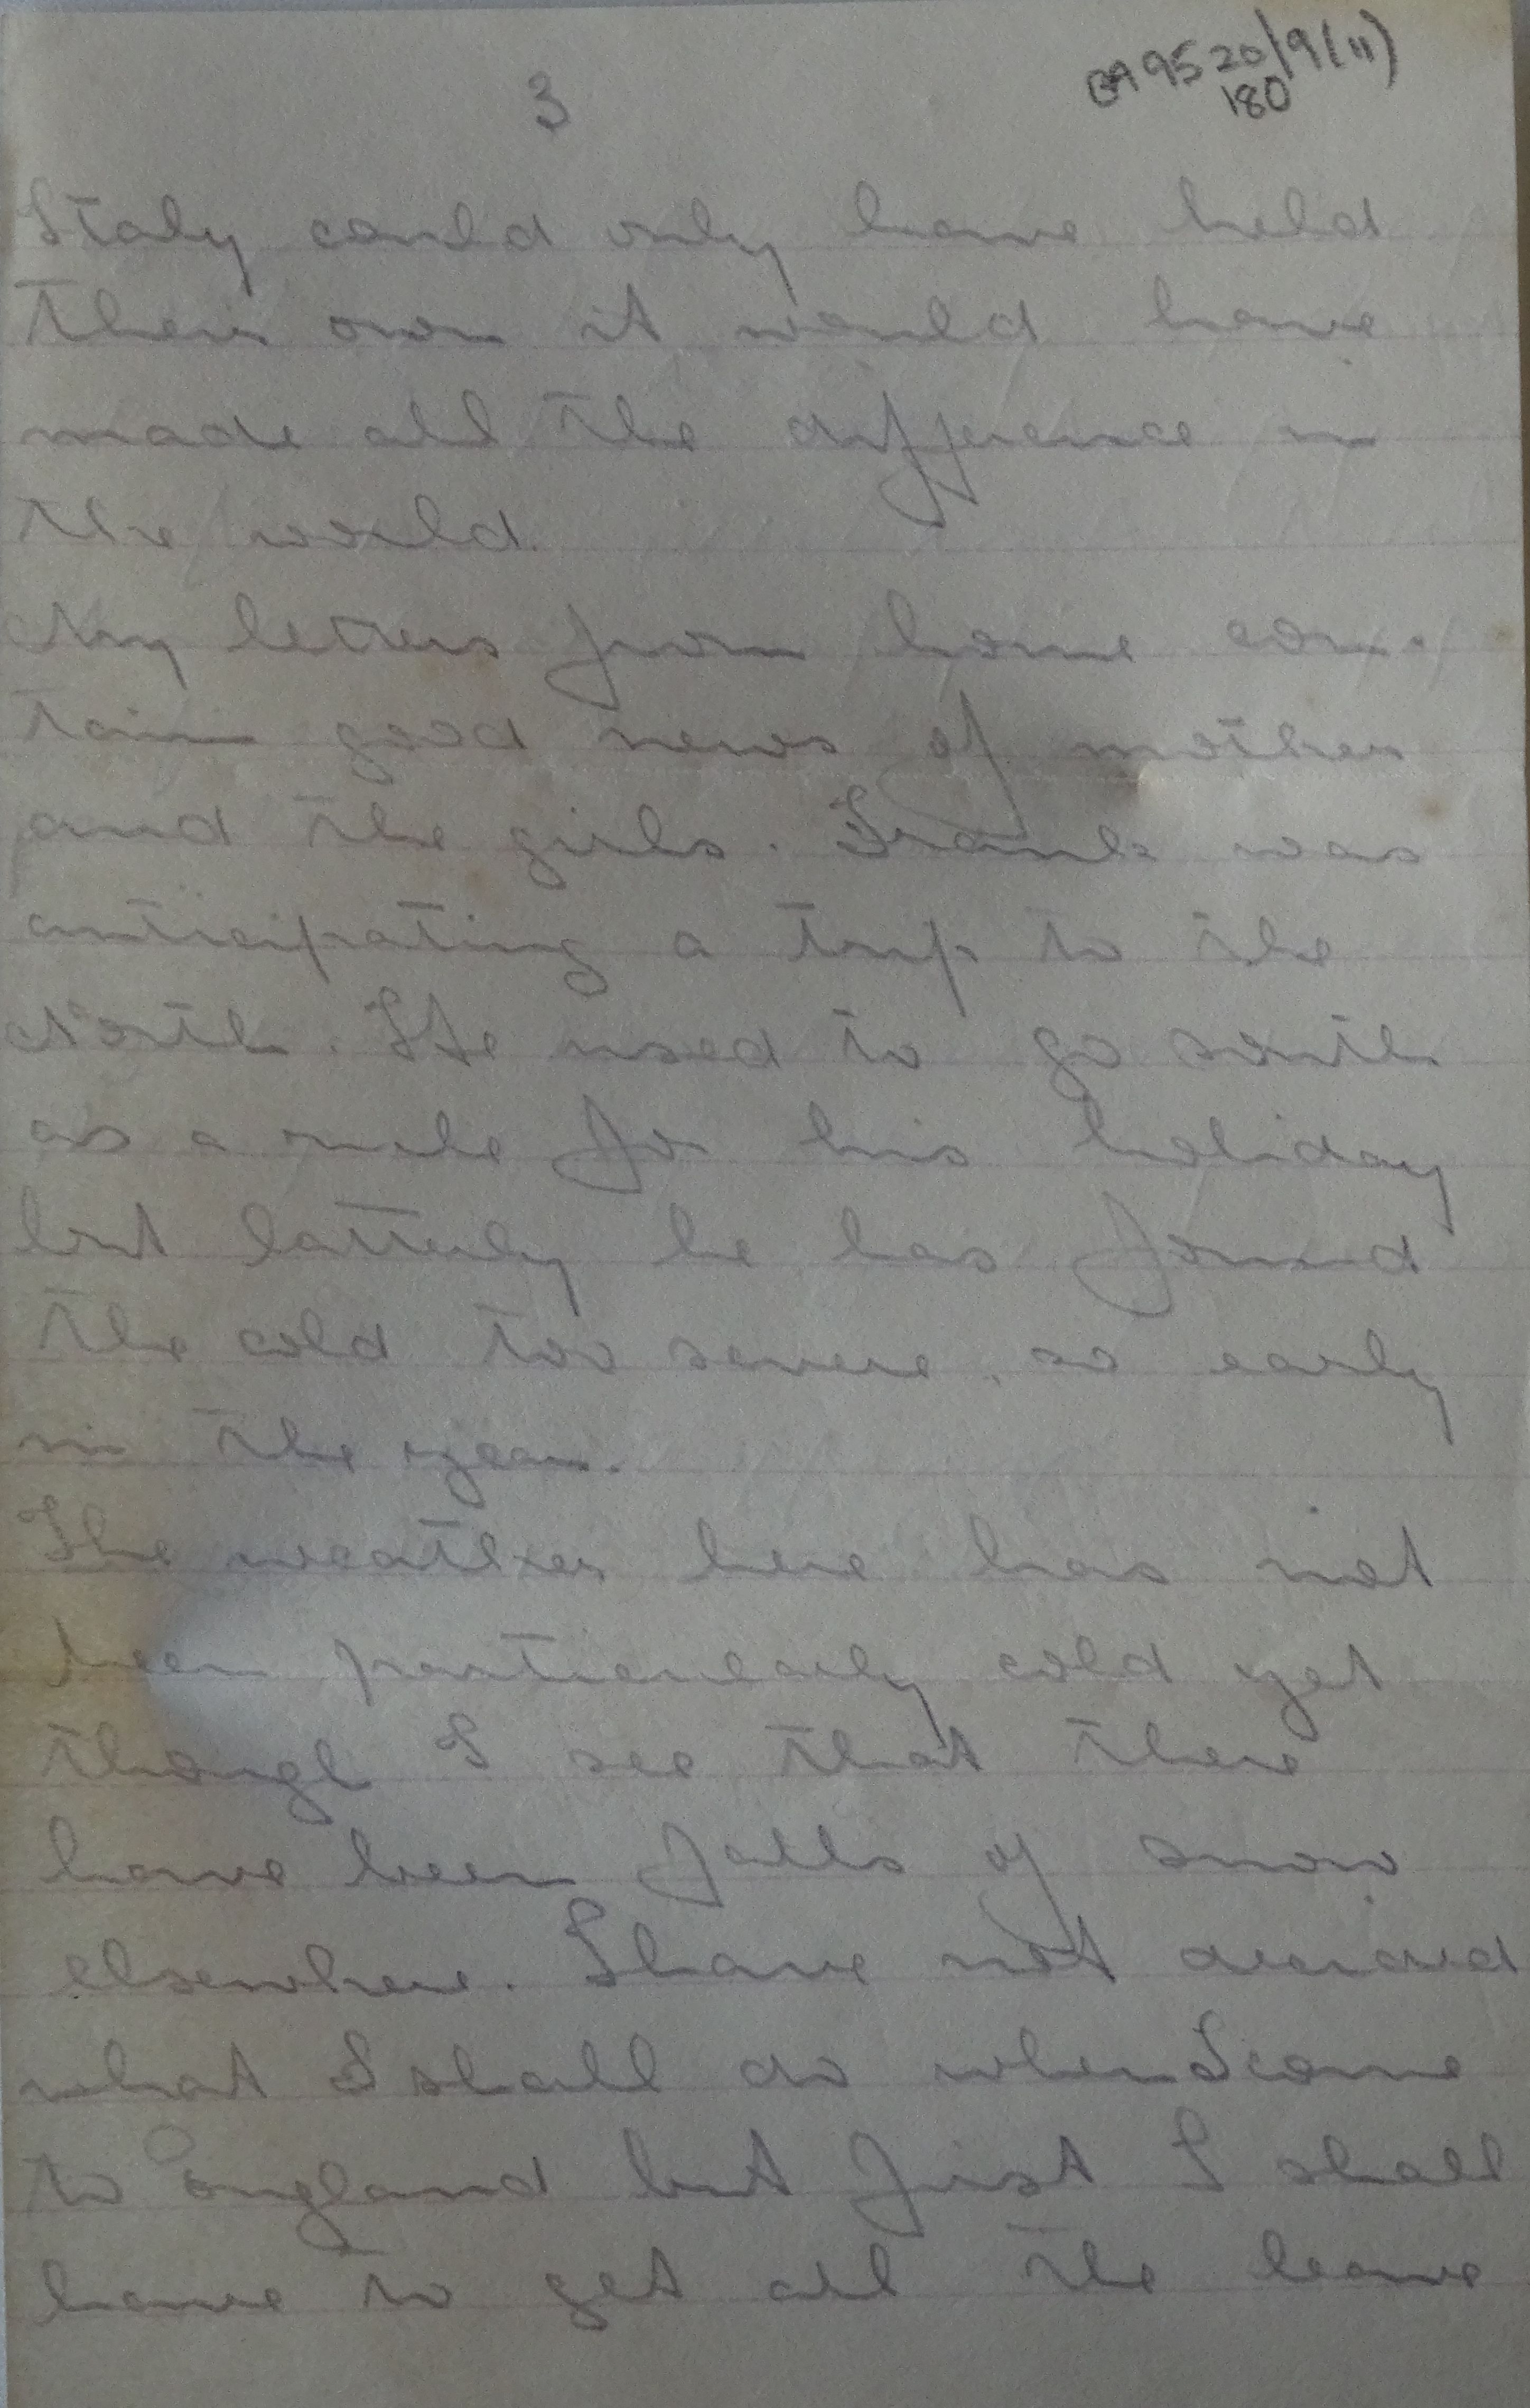 3
BA 9520/9(11)
180
Italy could only have held
their own it would have
made all the difference in
the world.
My letters from home con-
tain good news of mother
and the girls. Frank was
anticipating a trip to the
North. He used to go south
as a rule for his holiday
but latterly he has found
the cold too severe, so early
in the year.
The weather here has not
been particularly cold yet
though I see that there
have been falls of snow
elsewhere. I have not decided
what I shall do when I come
to England but first I shall
have to get all the leave